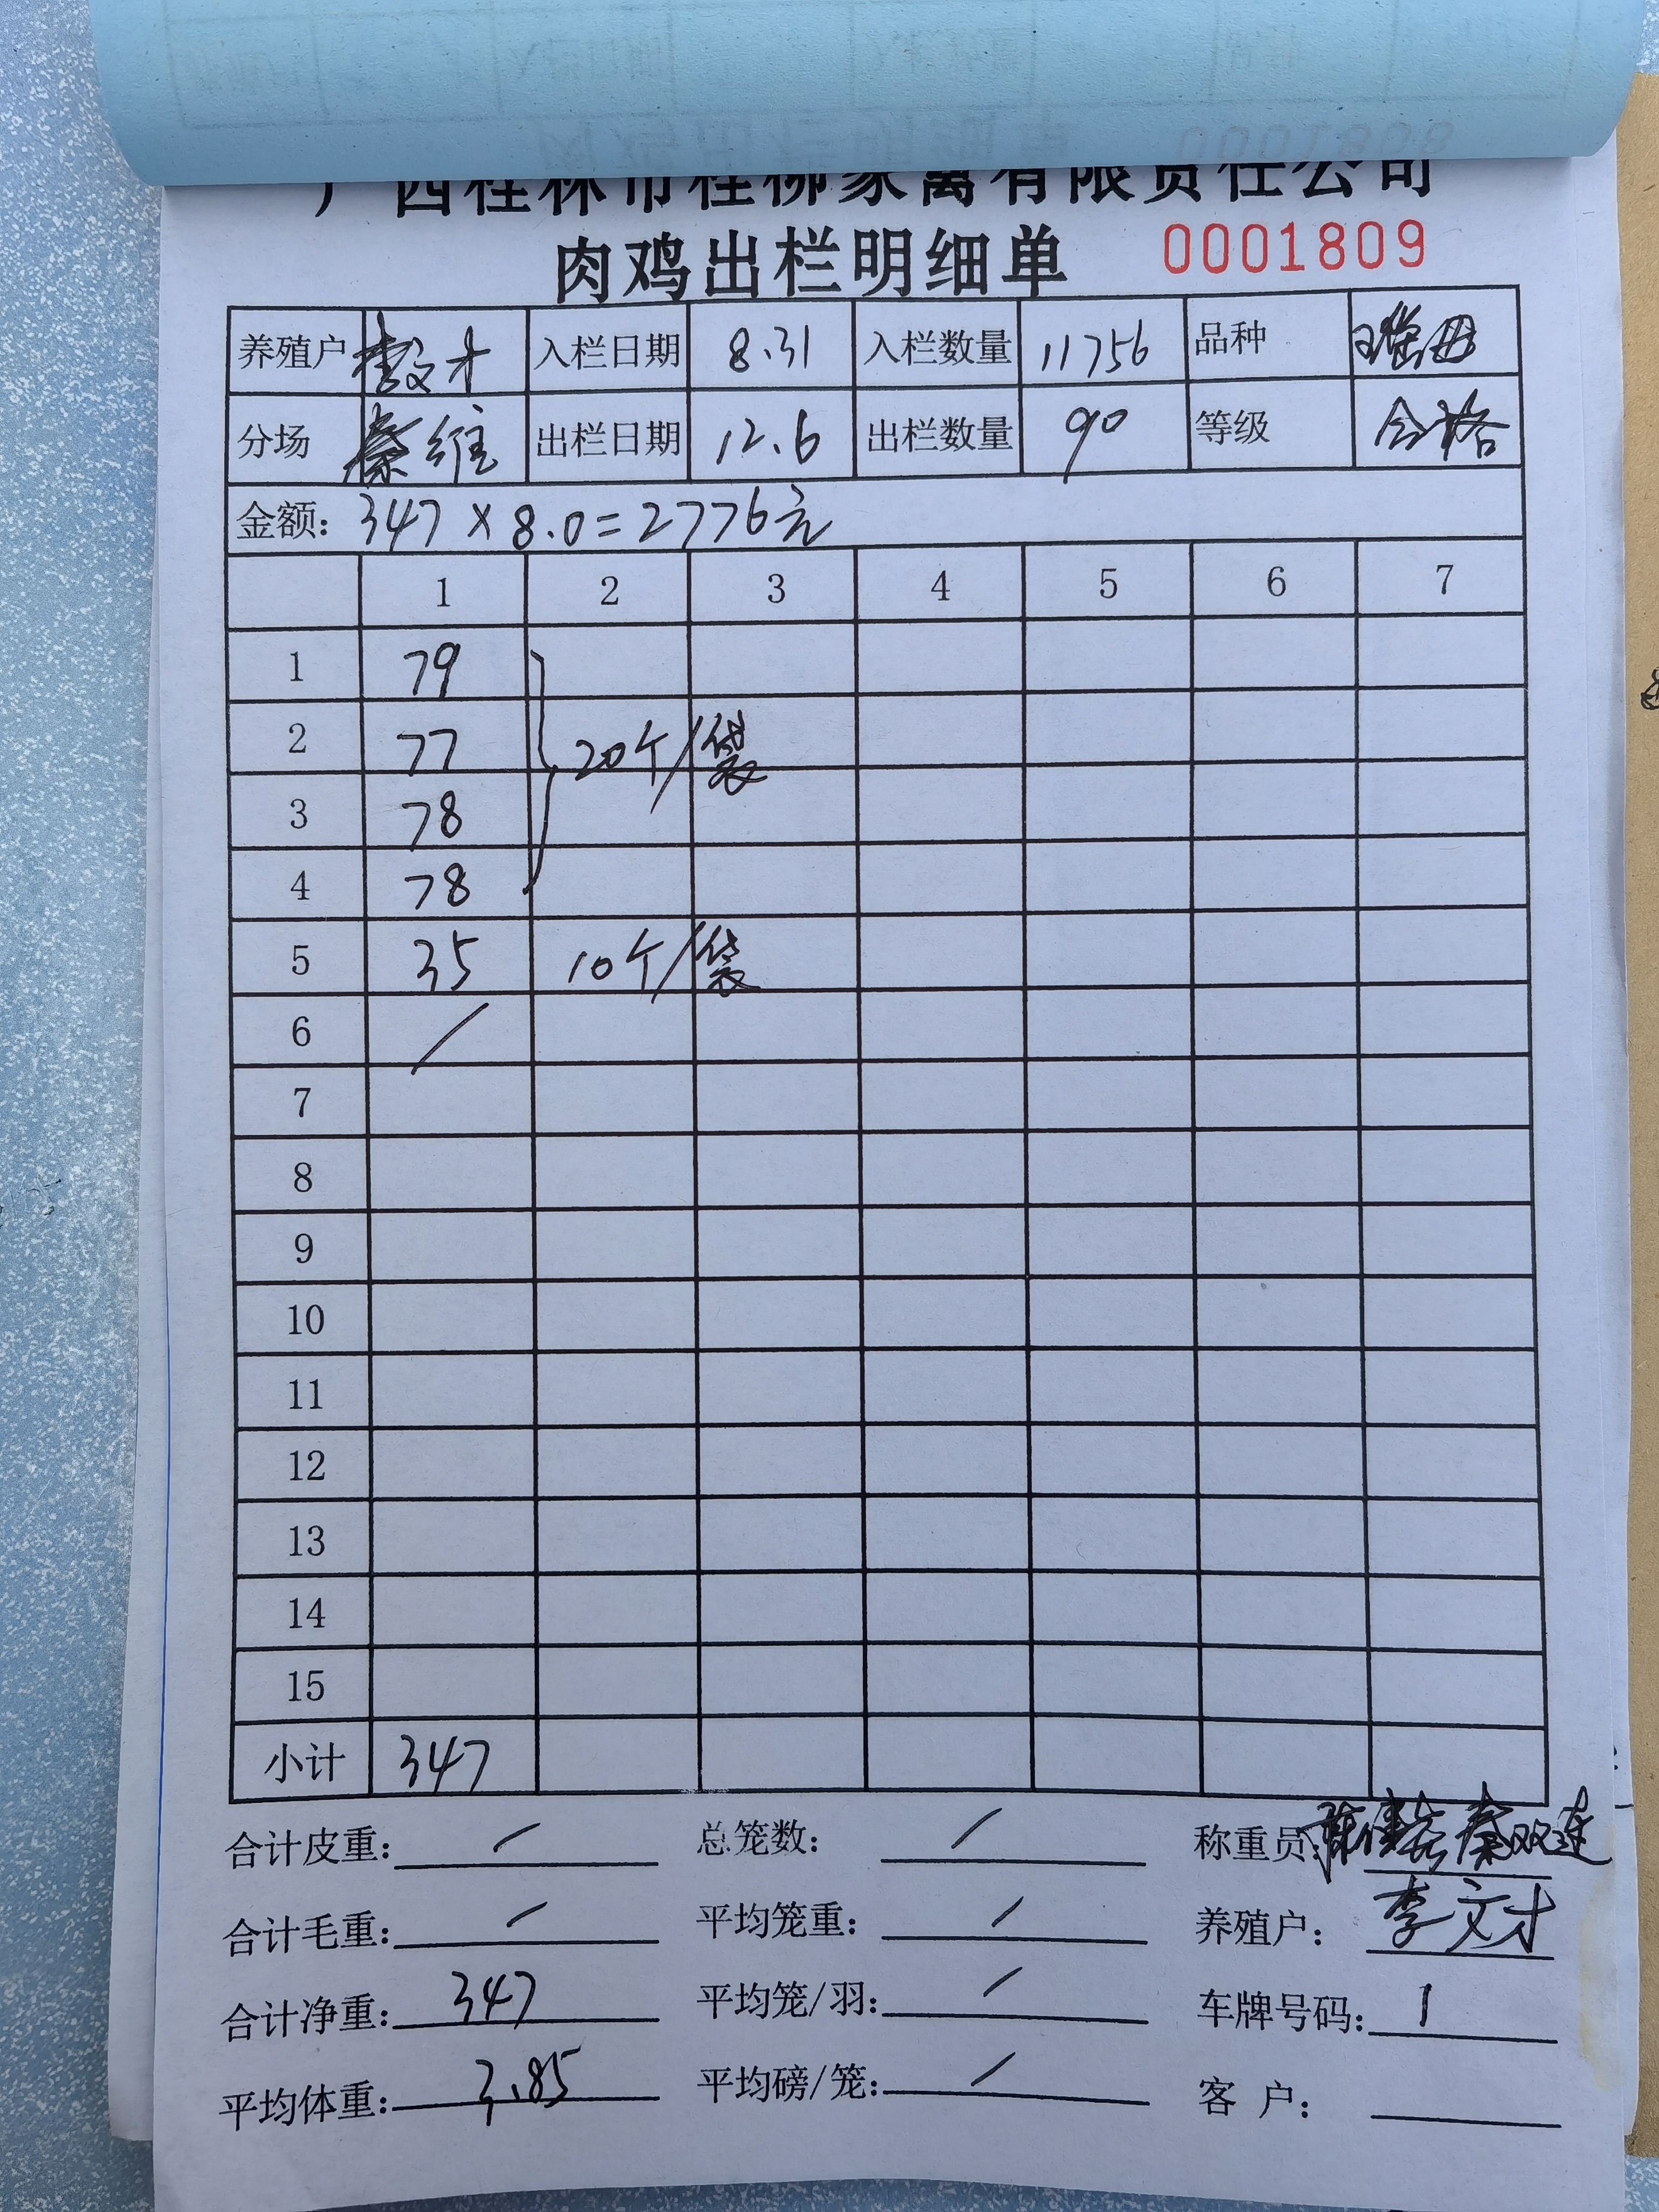 广西桂林市桂柳家禽有限责任公司
肉鸡出栏明细单 0001809
养殖户 李文才 入栏日期 8.31 入栏数量 11756 品种 瑞母
分场 秦维 出栏日期 12.6 出栏数量 90 等级 合格
金额: 347 × 8.0 = 2776元
1 2 3 4 5 6 7
1 79
2 77 20个/袋
3 78
4 78
5 35 10个/袋
6 /
7
8
9
10
11
12
13
14
15
小计 347
合计皮重: / 总笼数: / 称重员: 秦双连
合计毛重: / 平均笼重: / 养殖户: 李文才
合计净重: 347 平均笼/羽: / 车牌号码: 1
平均体重: 3.85 平均磅/笼: / 客 户: